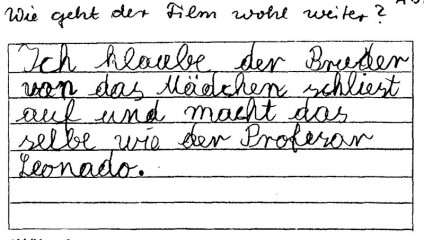 Wie geht der Film wohl weiter?
Ich klaube der Bruder
von das Mädchen schliest
auf und macht das
selbe wie der Profesor
Leonado.